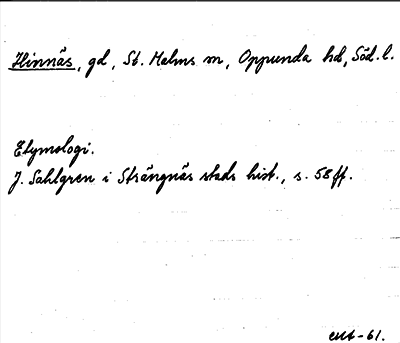 Hinnäs, gd, St. Malms sn, Oppunda hd, Söd. l.
Etymologi.
J. Sahlgren i Strängnäs stads hist., s. 58 ff.
-61.